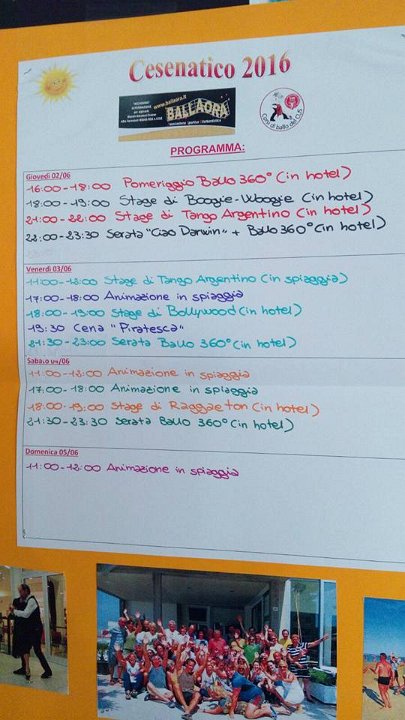 Cesenatico 2016
www.ballaora.it
BALLAORA
Corsi di ballo del C.I.S
PROGRAMMA:
Giovedì 02/06
16:00-18:00 Pomeriggio Ballo 360° (in hotel)
18:00-19:00 Stage di Boogie-Woogie (in hotel)
21:00-22:00 Stage di Tango Argentino (in hotel)
22:00-23:30 Serata "Ciao Darwin" + Ballo 360° (in hotel)
Venerdì 03/06
11:00-12:00 Stage di Tango Argentino (in spiaggia)
17:00-18:00 Animazione in spiaggia
18:00-19:00 Stage di Bollywood (in hotel)
19:30 Cena "Piratesca"
21:30-23:00 Serata Ballo 360° (in hotel)
Sabato 04/06
11:00-12:00 Animazione in spiaggia
17:00-18:00 Animazione in spiaggia
18:00-19:00 Stage di Raggaeton (in hotel)
21:30-23:30 Serata Ballo 360° (in hotel)
Domenica 05/06
11:00-12:00 Animazione in spiaggia